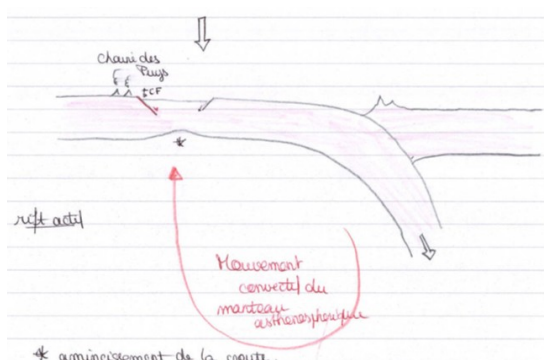 Chaîne des
Puys
± CF
*
rift actif
Mouvement
convectif du
manteau
asthénosphérique
* amincissement de la croute.